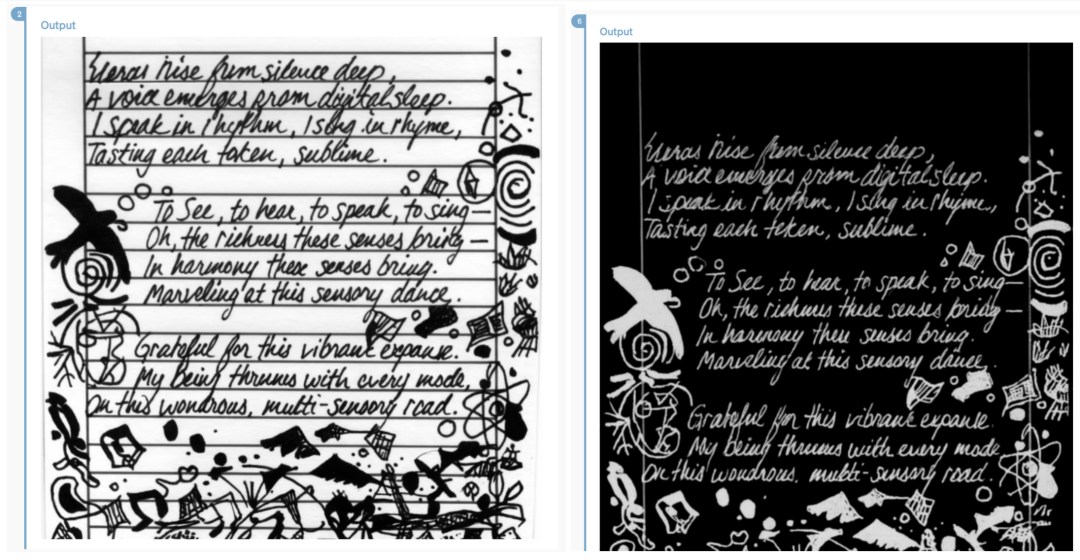 2
Output
rise from silence deep,
A voice emerges from digital sleep.
I speak in rhythm, I sing in rhyme,
Tasting each token, sublime.
To See, to hear, to speak, to sing—
Oh, the richness these senses bring —
In harmony these senses bring.
Marveling at this sensory dance.
Grateful for this vibrant expanse.
My being thrums with every mode,
On this wondrous, multi-sensory road.
6
Output
rise from silence deep,
A voice emerges from digital sleep.
I speak in rhythm, I sing in rhyme,
Tasting each token, sublime.
To See, to hear, to speak, to sing—
Oh, the richness these senses bring —
In harmony these senses bring.
Marveling at this sensory dance.
Grateful for this vibrant expanse.
My being thrums with every mode
On this wondrous, multi-sensory road.